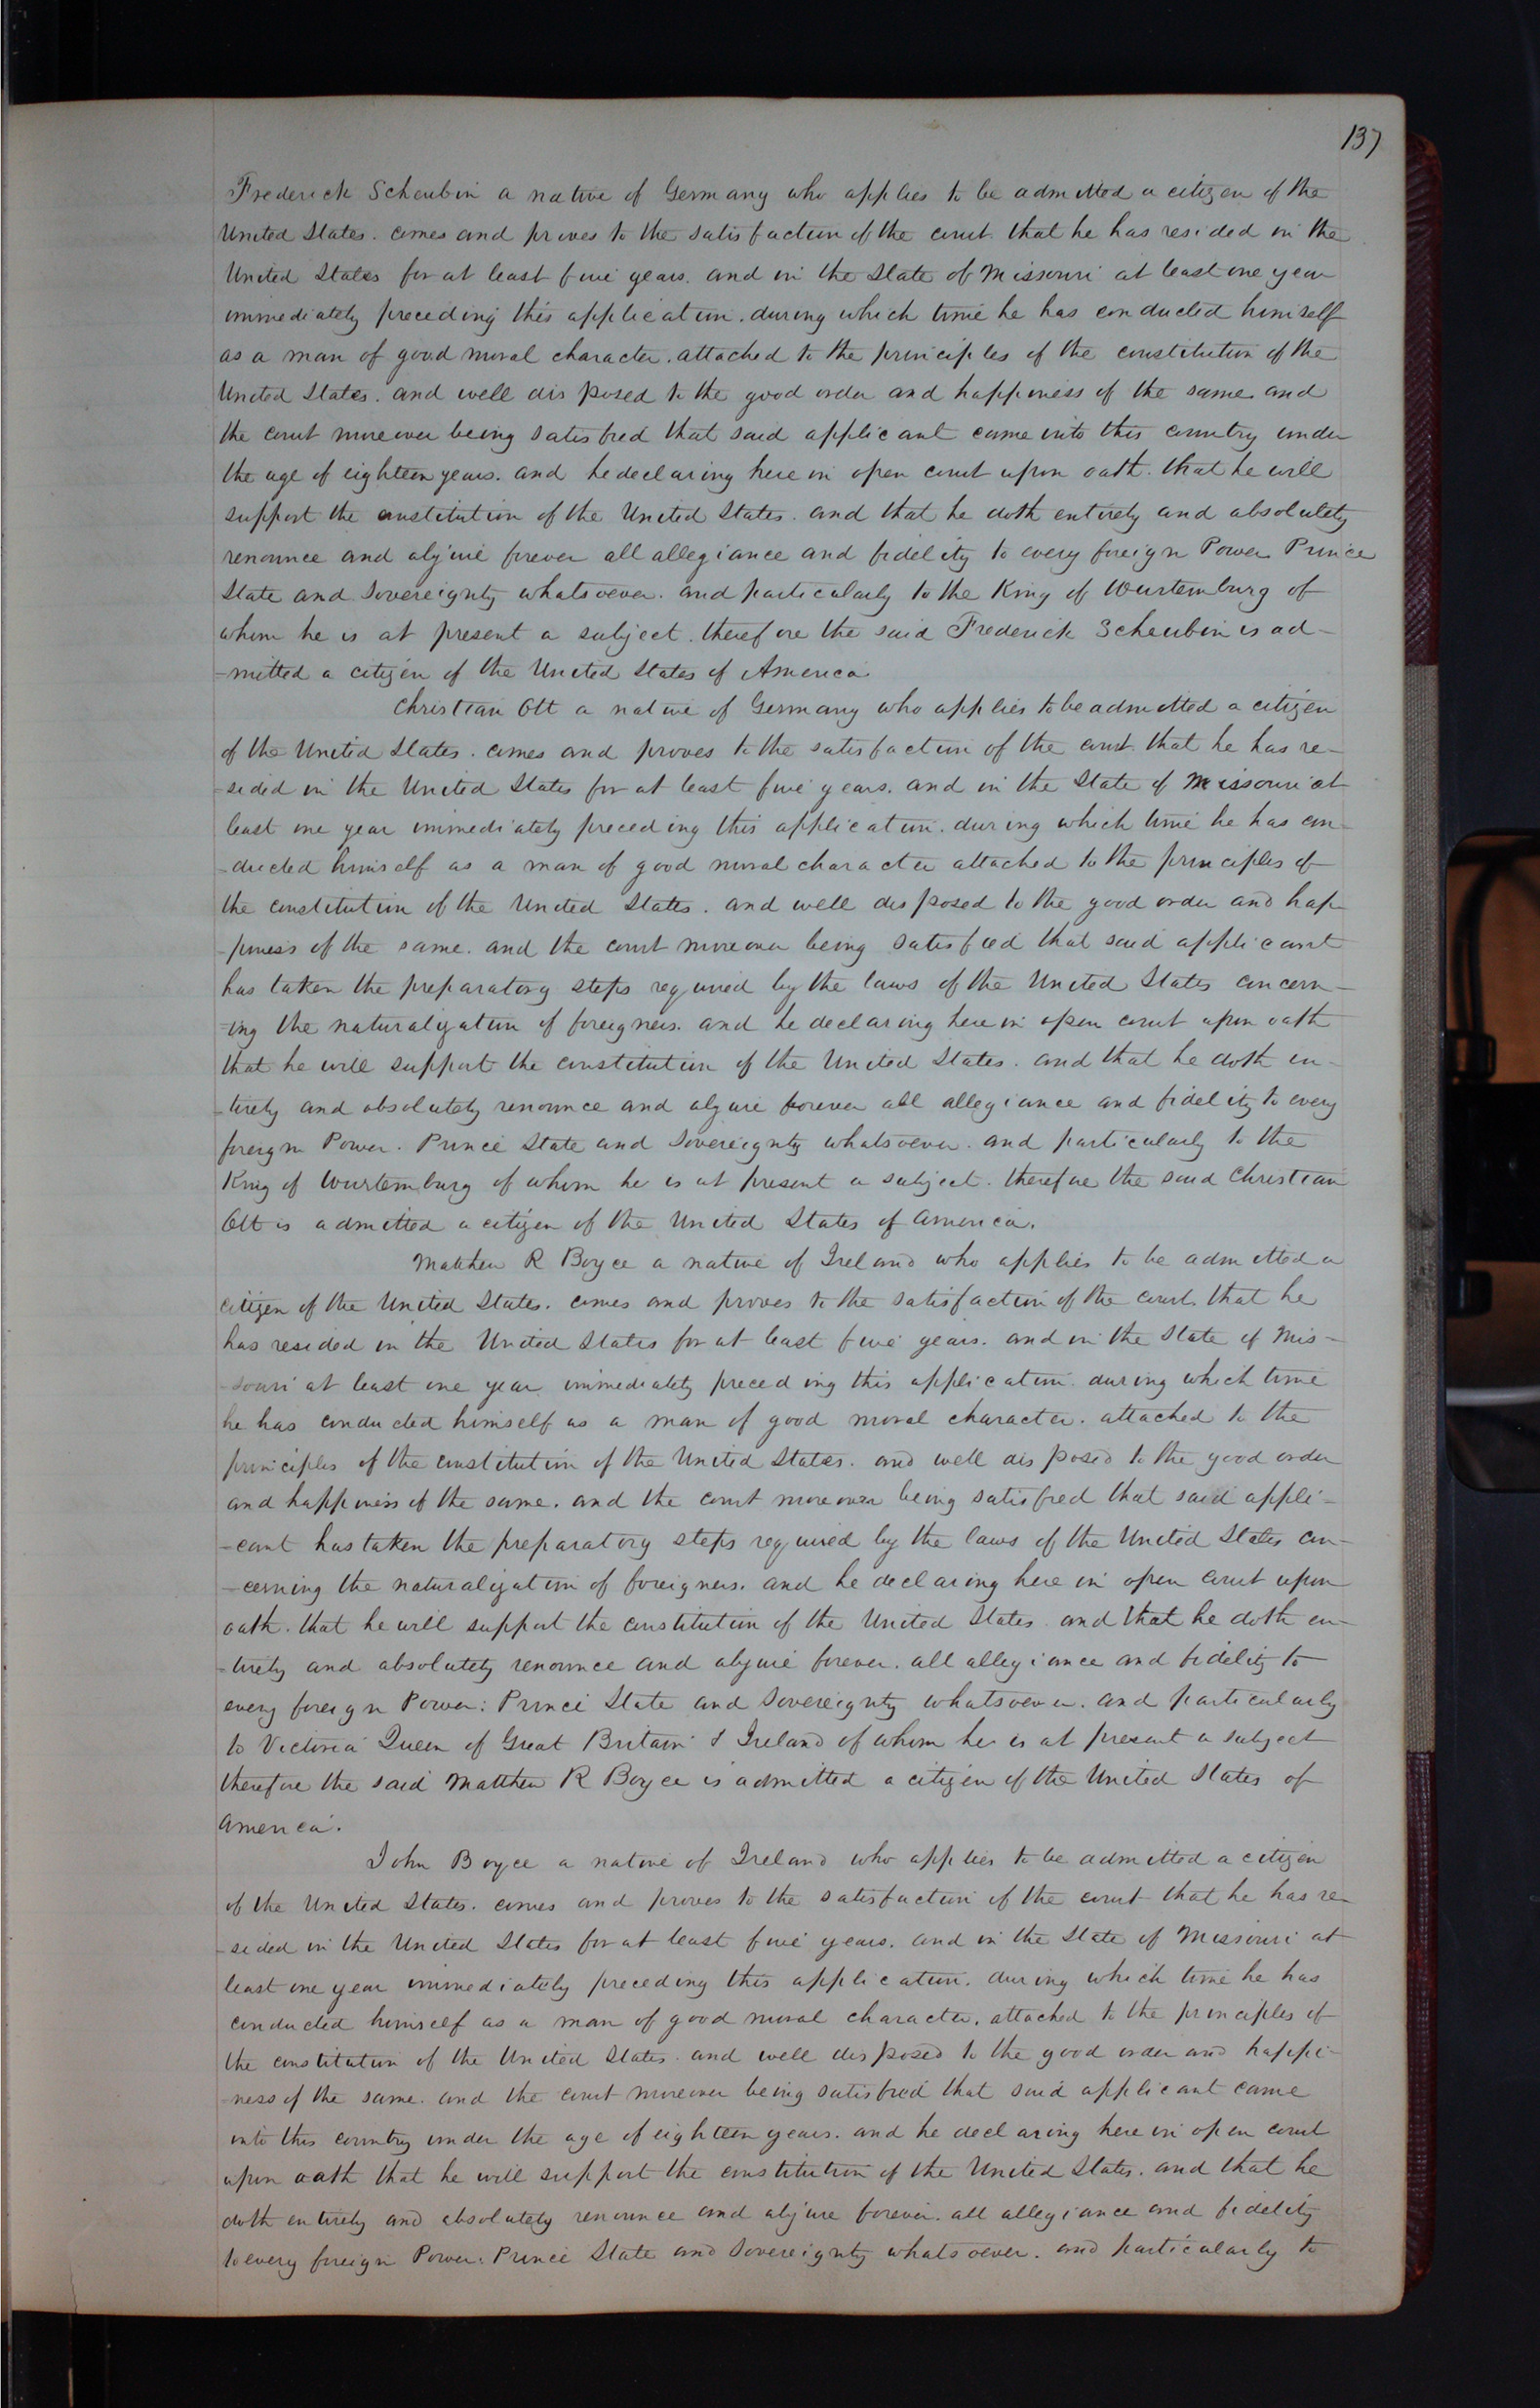 137
Frederick Scheubin a native of Germany who applies to be admitted a citizen of the
United States. comes and proves to the satisfaction of the court that he has resided in the
United States for at least five years. and in the State of Missouri at least one year
immediately preceding this application. during which time he has conducted himself
as a man of good moral character. attached to the principles of the constitution of the
United States. and well disposed to the good order and happiness of the same and
the court moreover being satisfied that said applicant came into this country under
the age of eighteen years. and he declaring here in open court upon oath. that he will
support the constitution of the United States. and that he doth entirely and absolutely
renounce and abjure forever all allegiance and fidelity to every foreign Power Prince
State and Sovereignty whatsoever. and particularly to the King of Wurtemburg of
whom he is at present a subject. therefore the said Frederick Scheubin is ad-
-mitted a citizen of the United States of America
Christian Ott a native of Germany who applies to be admitted a citizen
of the United States. comes and proves to the satisfaction of the court. that he has re-
-sided in the United States for at least five years. and in the State of Missouri at
least one year immediately preceding this application. during which time he has con-
-ducted himself as a man of good moral character attached to the principles of
the constitution of the United States. and well disposed to the good order and hap-
-piness of the same. and the court moreover being satisfied that said applicant
has taken the preparatory steps required by the laws of the United States concern-
-ing the naturalization of foreigners. and he declaring here in open court upon oath
that he will support the constitution of the United States. and that he doth en-
-tirely and absolutely renounce and abjure forever all allegiance and fidelity to every
foreign Power. Prince State and Sovereignty whatsoever. and particularly to the
King of Wurtemburg of whom he is at present a subject. therefore the said Christian
Ott is admitted a citizen of the United States of America.
Matthew R Boyce a native of Ireland who applies to be admitted a
citizen of the United States. comes and proves to the satisfaction of the court. that he
has resided in the United States for at least five years. and in the State of Mis-
-souri at least one year immediately preceding this application. during which time
he has conducted himself as a man of good moral character. attached to the
principles of the constitution of the United States. and well disposed to the good order
and happiness of the same. and the court moreover being satisfied that said appli-
-cant has taken the preparatory steps required by the laws of the United States con-
-cerning the naturalization of foreigners. and he declaring here in open court upon
oath. that he will support the constitution of the United States. and that he doth en-
-tirely and absolutely renounce and abjure forever. all allegiance and fidelity to
every foreign Power. Prince State and Sovereignty whatsoever. and particularly
to Victoria Queen of Great Britain & Ireland of whom he is at present a subject
therefore the said Matthew R Boyce is admitted a citizen of the United States of
America.
John Boyce a native of Ireland who applies to be admitted a citizen
of the United States. comes and proves to the satisfaction of the court that he has re-
-sided in the United States for at least five years. and in the State of Missouri at
least one year immediately preceding this application. during which time he has
conducted himself as a man of good moral character. attached to the principles of
the constitution of the United States. and well disposed to the good order and happi-
-ness of the same. and the court moreover being satisfied that said applicant came
into this country under the age of eighteen years. and he declaring here in open court
upon oath that he will support the constitution of the United States. and that he
doth entirely and absolutely renounce and abjure forever. all allegiance and fidelity
to every foreign Power. Prince State and Sovereignty whatsoever. and particularly to